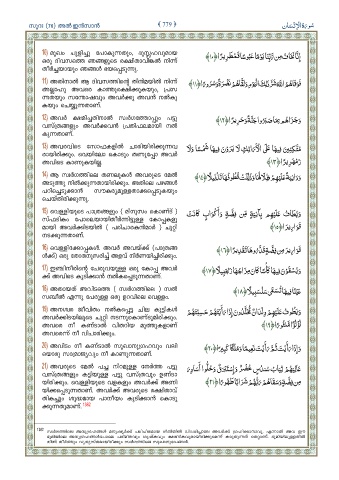 സൂറ: (76) അൽ ഇൻസാൻ
﴾ 779 ﴿
سورة الإنسان
10) മുഖം ചുളിച്ചു പോകുന്നതും, ദുസ്സഹവുമായ
ഒരു ദിവസത്തെ ഞങ്ങളുടെ രക്ഷിതാവിങ്കൽ നിന്ന്
തീർച്ചയായും ഞങ്ങൾ ഭയപ്പെടുന്നു.
إِنَّا نَخَافُ مِن رَّبِّنَا يَوْمًا عَبُوسًا قَمْطَرِيرًا ﴿١٠﴾
11) അതിനാൽ ആ ദിവസത്തിന്റെ തിന്മയിൽ നിന്ന്
അല്ലാഹു അവരെ കാത്തുരക്ഷിക്കുകയും, പ്രസ
ന്നതയും സന്തോഷവും അവർക്കു അവൻ നൽകു
കയും ചെയ്യുന്നതാണ്.
فَوَقَاهُمُ اللَّهُ شَرَّ ذَٰلِكَ الْيَوْمِ وَلَقَّاهُمْ نَضْرَةً وَسُرُورًا ﴿١١﴾
12) അവർ ക്ഷമിച്ചതിനാൽ സ്വർഗത്തോപ്പും പട്ടു
വസ്ത്രങ്ങളും അവർക്കവൻ പ്രതിഫലമായി നൽ
കുന്നതാണ്.
وَجَزَاهُم بِمَا صَبَرُوا جَنَّةً وَحَرِيرًا ﴿١٢﴾
13) അവരവിടെ സോഫകളിൽ ചാരിയിരിക്കുന്നവ
രായിരിക്കും. വെയിലോ കൊടും തണുപ്പോ അവർ
അവിടെ കാണുകയില്ല.
مُّتَّكِئِينَ فِيهَا عَلَى الْأَرَائِكِ لَا يَرَوْنَ فِيهَا شَمْسًا وَلَا
زَمْهَرِيرًا ﴿١٣﴾
14) ആ സ്വർഗത്തിലെ തണലുകൾ അവരുടെ മേൽ
അടുത്തു നിൽക്കുന്നതായിരിക്കും. അതിലെ പഴങ്ങൾ
പറിച്ചെടുക്കാൻ സൗകര്യമുള്ളതാക്കപ്പെടുകയും
ചെയ്തിരിക്കുന്നു.
وَدَانِيَةً عَلَيْهِمْ ظِلَالُهَا وَذُلِّلَتْ قُطُوفُهَا تَذْلِيلًا ﴿١٤﴾
15) വെള്ളിയുടെ പാത്രങ്ങളും
സ്ഫടികം പോലെയായിത്തീർന്നിട്ടുള്ള കോപ്പകളു
മായി അവർക്കിടയിൽ ( പരിചാരകന്മാർ ) ചുറ്റി
നടക്കുന്നതാണ്.
وَيُطَافُ عَلَيْهِم بِآنِيَةٍ مِّن فِضَّةٍ وَأَكْوَابٍ كَانَتْ
قَوَارِيرَا ﴿١٥﴾
16) വെള്ളിക്കോപ്പകൾ. അവർ അവയ്ക്ക് (പാത്രങ്ങ
ൾക്ക്) ഒരു തോതനുസരിച്ച് അളവ് നിർണയിച്ചിരിക്കും.
قَوَارِيرَ مِن فِضَّةٍ قَدَّرُوهَا تَقْدِيرًا ﴿١٦﴾
17) ഇഞ്ചിനീരിന്റെ ചേരുവയുള്ള ഒരു കോപ്പ അവർ
ക്ക് അവിടെ കുടിക്കാൻ നൽകപ്പെടുന്നതാണ്.
وَيُسْقَوْنَ فِيهَا كَأْسًا كَانَ مِزَاجُهَا زَنجَبِيلًا ﴿١٧﴾
18) അതായത് അവിടത്തെ ( സ്വർഗത്തിലെ ) സൽ
സബീൽ എന്നു പേരുള്ള ഒരു ഉറവിലെ വെള്ളം.
عَيْنًا فِيهَا تُسَمَّىٰ سَلْسَبِيلًا ﴿١٨﴾
19) അനശ്വര ജീവിതം നൽകപ്പെട്ട ചില കുട്ടികൾ
അവർക്കിടയിലൂടെ ചുറ്റി നടന്നുകൊണ്ടിരിക്കും.
അവരെ നീ കണ്ടാൽ വിതറിയ മുത്തുകളാണ്
അവരെന്ന് നീ വിചാരിക്കും.
وَيَطُوفُ عَلَيْهِمْ وِلْدَانٌ مُّخَلَّدُونَ إِذَا رَأَيْتَهُمْ حَسِبْتَهُمْ
لُؤْلُؤًا مَّنثُورًا ﴿١٩﴾
20) അവിടം നീ കണ്ടാൽ സുഖാനുഗ്രഹവും വലി
യൊരു സാമ്രാജ്യവും നീ കാണുന്നതാണ്.
وَإِذَا رَأَيْتَ ثَمَّ رَأَيْتَ نَعِيمًا وَمُلْكًا كَبِيرًا ﴿٢٠﴾
21) അവരുടെ മേൽ പച്ച നിറമുള്ള നേർത്ത പട്ടു
വസ്ത്രങ്ങളും കട്ടിയുള്ള പട്ടു വസ്ത്രവും ഉണ്ടാ
യിരിക്കും. വെള്ളിയുടെ വളകളും അവർക്ക് അണി
യിക്കപ്പെടുന്നതാണ്. അവർക്ക് അവരുടെ രക്ഷിതാവ്
തികച്ചും ശുദ്ധമായ പാനീയം കുടിക്കാൻ കൊടു
ക്കുന്നതുമാണ്.
عَالِيَهُمْ ثِيَابُ سُندُسٍ خُضْرٌ وَإِسْتَبْرَقٌ وَحُلُّوا أَسَاوِرَ
مِن فِضَّةٍ وَسَقَاهُمْ رَبُّهُمْ شَرَابًا طَهُورًا ﴿٢١﴾